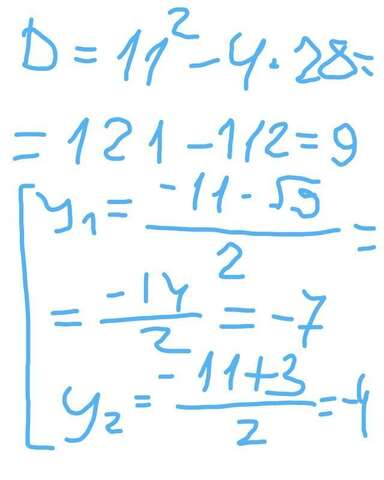 D = 11² - 4 · 28 =
= 121 - 112 = 9
y₁ = (-11 - √9)/2 =
= -14/2 = -7
y₂ = (-11+3)/2 = -4